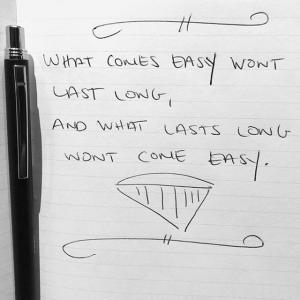 WHAT COMES EASY WONT
LAST LONG,
AND WHAT LASTS LONG
WONT COME EASY.